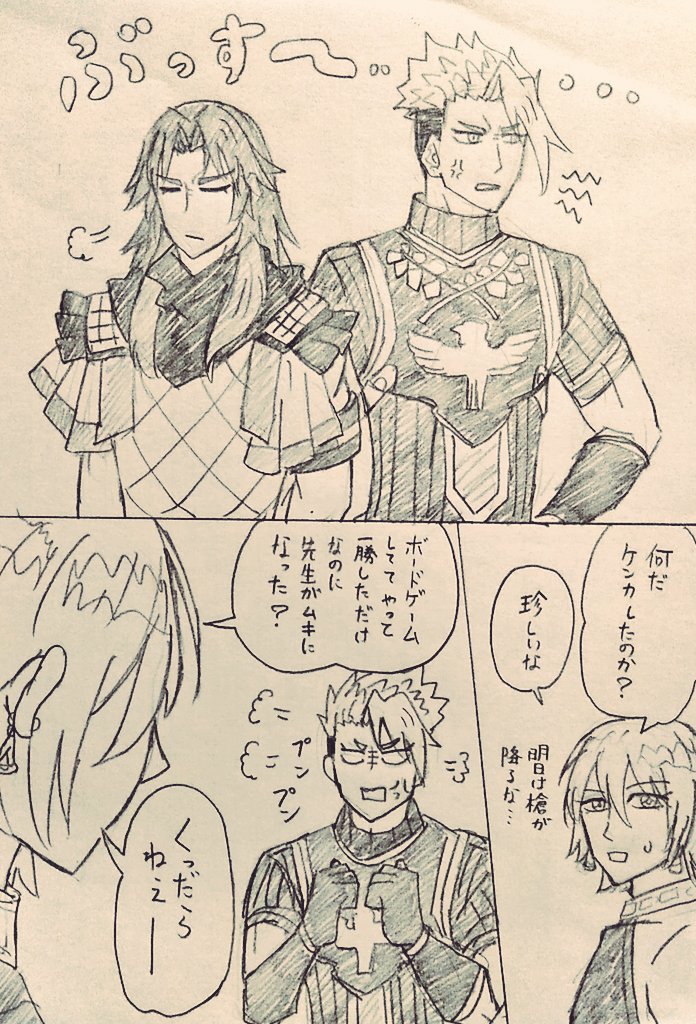 ぶっす〜‥…
何だ
ケンカしたのか？
珍しいな
明日は槍が
降るな…
ボードゲーム
しててやって
一勝しただけ
なのに
先生がムキに
なった？
プン
プン
くっだら
ねぇー